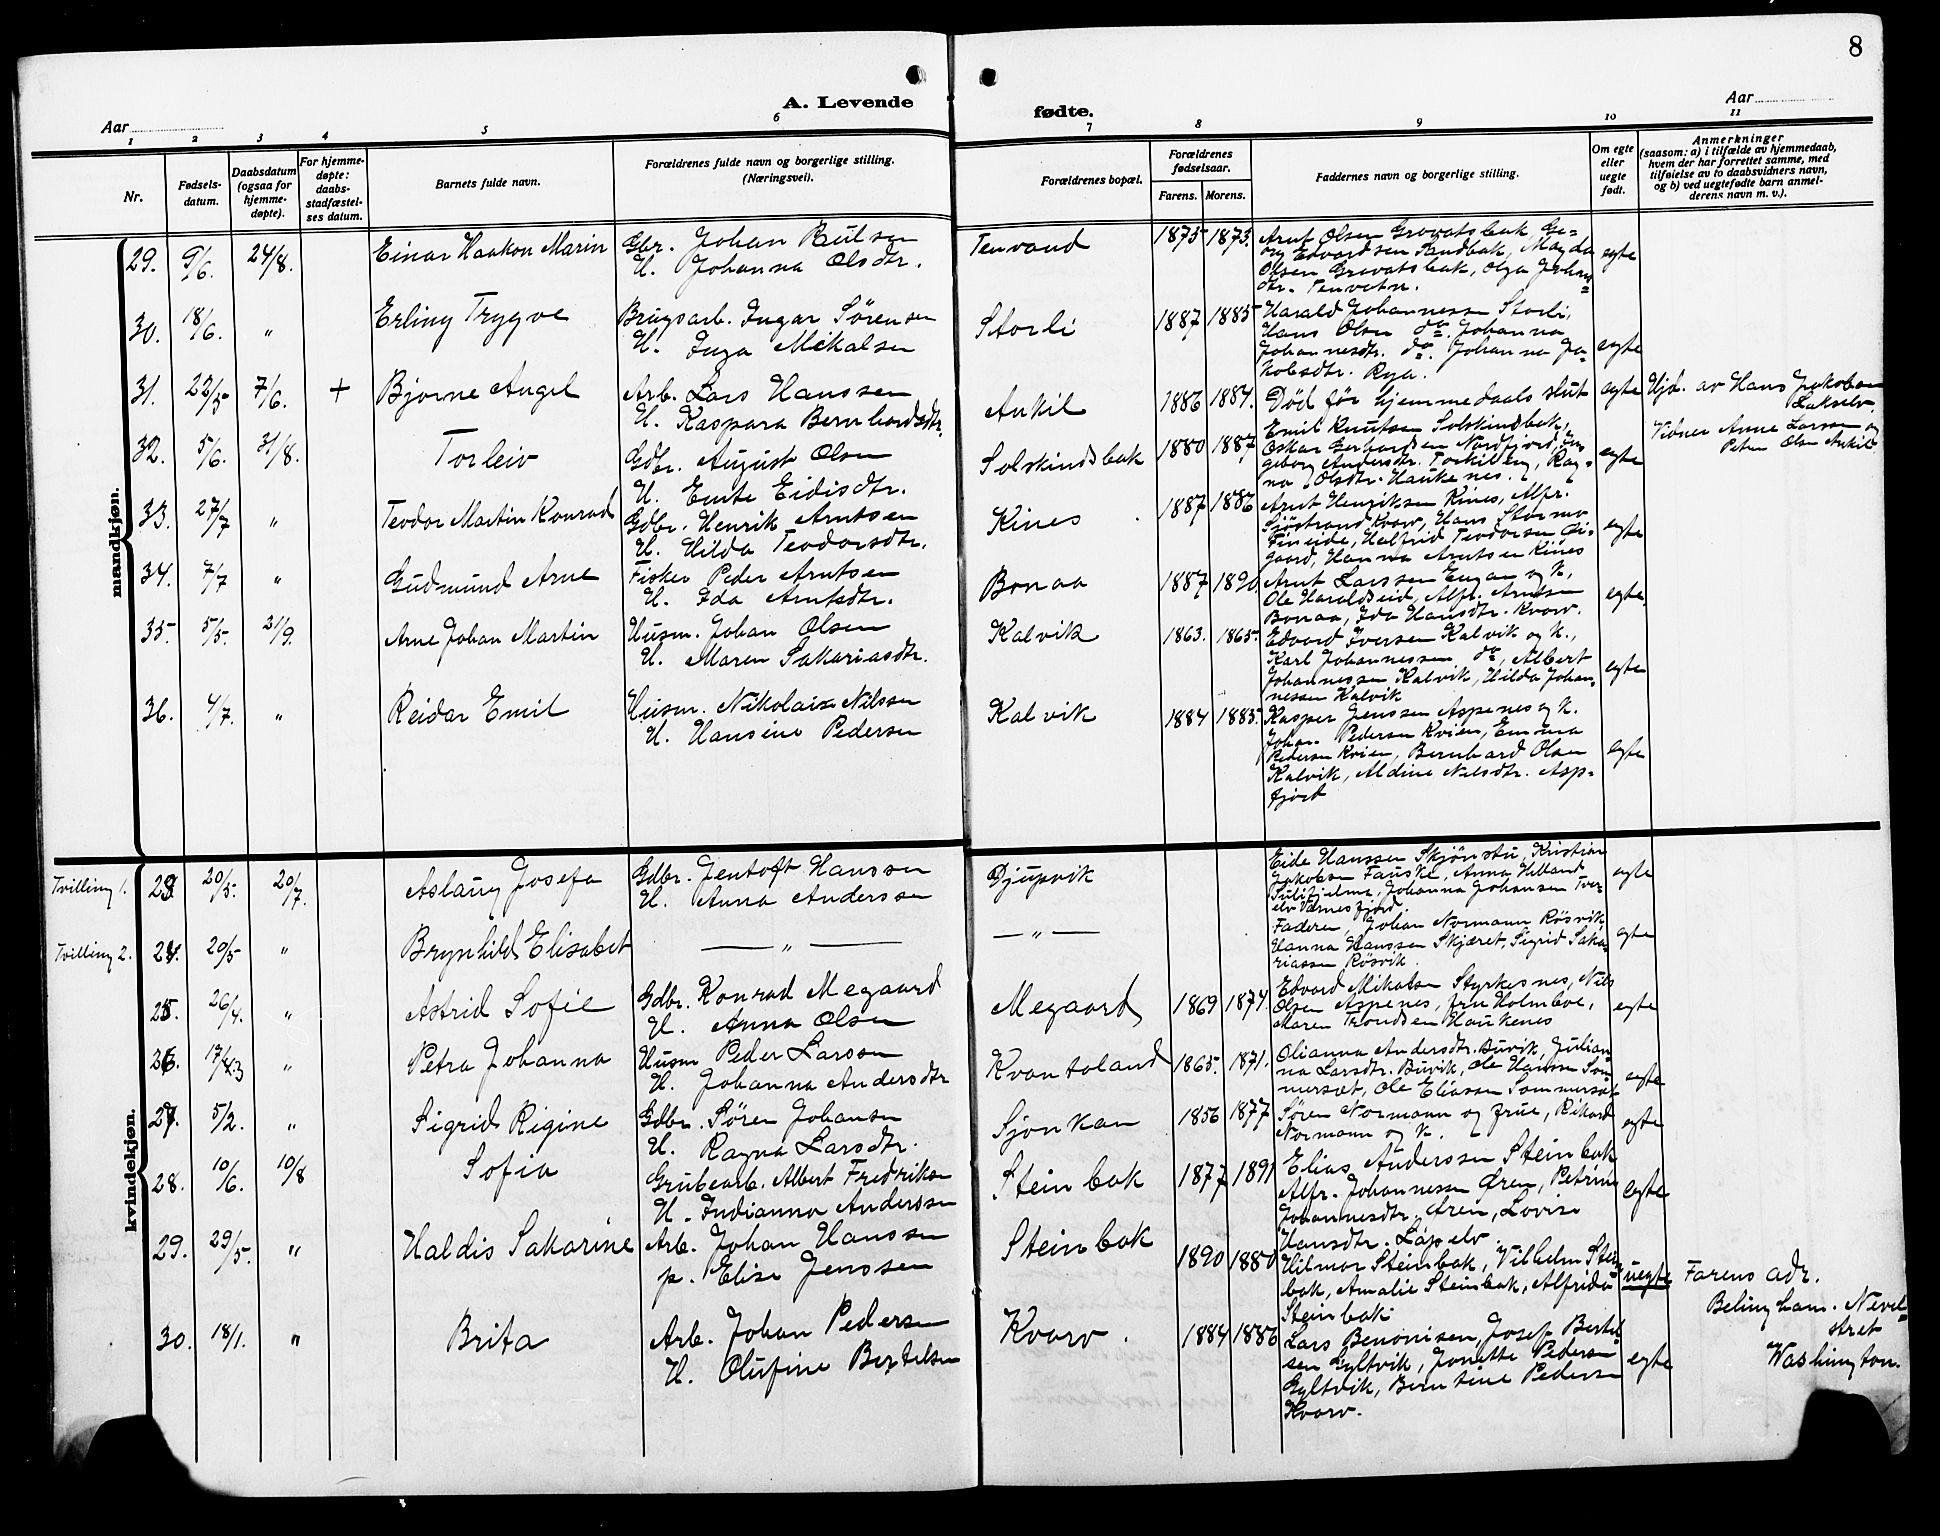 8
A. Levende
fødte.
Aar
Aar
1 2 3 4 5 6 7 8 9 10 11
Nr.
Fødsels-
datum.
Daabsdatum
(ogsaa for
hjemme-
døpte).
For hjemme-
døpte:
daabs-
stadfæstel-
ses datum.
Barnets fulde navn.
Forældrenes fulde navn og borgerlige stilling.
(Næringsvei).
Forældrenes bopæl.
Forældrenes
fødselsaar.
Farens. Morens.
Faddernes navn og borgerlige stilling.
Om egte
eller
uegte
født.
Anmerkninger
(saasom: a) i tilfælde av hjemmedaab,
hvem der har forrettet samme, med
tilføielse av to daabsvidners navn,
og b) ved uegtefødte barn anmel-
derens navn m. v.).
mandkjøn.
29. 9/6. 24/8. Einar Haakon Marin
Gbr. Johan Bulsen
H. Johanna Olsdtr.
Tenvand 1875 1873.
Arnt Olsen Grovatsbak, Ge-
org Edvardsen Sandbak, Magda
Olsen Grovatsbak, Olga Johans
dtr. Tenvatn.
egte
30. 18/6. " Erling Trygve
Brugsarb. Ingar Sørensen
H. Inga Mikalsen
Storli 1887 1885
Harald Johannessen Storli,
Hans Olsen do. Johanna
Johannesdtr. do. Johanna Ja-
kobsdtr. Rya.
egte
31. 22/5 7/6. + Bjarne Angel
Arb. Lars Hanssen
H. Kaspara Bernhardsdtr.
Ankil 1886 1884.
Død før hjemmedaabs slut
egte
Hjd. av Hans Jakobsen
Lakselv.
Vidner Anne Larssen og
Petra Olsen Ankil
32. 5/6. 31/8. Torleiv
Gdbr. August Olsen
H. Emte Eidisdtr.
Solskindsbak 1880 1887
Emil Knutsen Solskindbak,
Oskar Gerhardsen Nordfjord, In-
geborg Andersdtr. Torkilleng, Rag-
na Olsdtr. Haukenes.
egte
33. 27/7 " Teodor Martin Konrad
Gdbr. Henrik Arntsen
H. Hilda Teodorsdtr.
Kines 1887 1886
Arnt Henriksen Kines, Alfr.
Sjöstrand Kvarv, Hans Stormo
Fineide, Halfrid Teodorsen Di-
gaard, Hanna Arntsen Kines
egte
34. 7/7 " Gudmund Arne
Fisker Peder Arntsen
H. Ida Arntsdtr.
Bonaa 1887 1890.
Arnt Larssen Engan og k.,
Ole Haraldseid, Alfr. Arntsen
Bonaa, Ida Hansdtr. Kvarv.
egte.
35. 5/5 21/9. Arne Johan Martin
Husm. Johan Olsen
H. Maren Sakariasdtr.
Kalvik 1863. 1865.
Edvard Iversen Kalvik og k.,
Karl Johannessen do, Albert
Johannessen Kalvik, Hilda Johan-
nessen Kalvik
egte
36. 4/7. " Reidar Emil
Husm. Nikolai Nilssen
H. Hansine Pedersen
Kalvik 1884 1885.
Kasper Jenssen Aspenes og k.
Johan Pedersen Kvien, Emma
Pedersen Kvien, Bernhard Olsen
Kalvik, Aldine Nilsdtr. Asp-
fjord
egte
kvindekjøn.
Tvilling 1. 23. 20/5. 20/7. Aslaug Josefa
Gdbr. Jentoft Hanssen
H. Anna Anderssen
Djupvik
Eide Hanssen Skjönstu, Kristian
Jakobsen Fauske, Anna Helland
Sulitjelma, Johanna Johansen Tver-
elv Værnesfjord.
egte
Tvilling 2. 24. 20/5 " Brynhild Elisabet
— " —
— " —
Faderen, Johan Normann Rösvik
Hanna Hanssen Skjæret, Sigrid Saka-
riassen Rösvik.
egte
25. 26/4. " Astrid Sofie
Gdbr. Konrad Megaard
H. Anna Olsen
Megaard 1869 1874.
Edvard Mikalsen Styrkesnes, Nils
Olsen Aspenes, fru Holmboe,
Maren Trondsen Haukenes
egte
26. 17/3 " Petra Johanna
Husm Peder Larssen
H. Johanna Andersdtr
Kvantoland 1865. 1871.
Olianna Andersdtr. Buvik, Julian-
na Larsdtr. Buvik, Ole Hanssen Som-
merset, Ole Eliassen Sommerset
egte
27. 5/2. " Sigrid Rigine
Gdbr. Sören Johansen
H. Ragna Larsdtr.
Sjönkan 1856 1877
Sören Normann og frue, Rikard
Normann og k.
egte
28. 10/6. 10/8 Sofia
Grubearb. Albert Fredriksen
H. Indianna Anderssen
Steinbak 1877 1891
Elias Anderssen Steinbak
Alfr. Johannessen Øren, Petrine
Johannesdtr. Øren, Lovise
Hansdtr. Lapelv.
egte
29. 29/5. " Haldis Sakarine
Arb. Johan Hanssen
p. Elise Jenssen
Steinbak 1890 1880
Hilmar Steinbak, Vilhelm Stein-
bak, Amalie Steinbak, Alfrida
Steinbak
uegte
Farens adr.
Belingham. Nevel-
stret
Washington.
30. 18/1. " Brita
Arb. Johan Pedersen
H. Olufine Bertelsen
Kvarv. 1884 1886
Lars Benonisen, Josef Bertel-
sen Gyltvik, Jonette Pedersen
Gyltvik, Berntine Pedersen
Kvarv.
egte